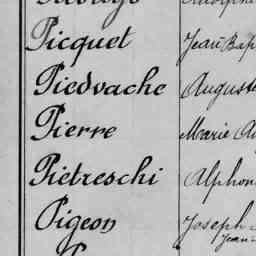 Picquet Jean Bap
Piedvache Auguste
Pierre Marie Au
Pietreschi Alphon
Pigeon Joseph
Jean-